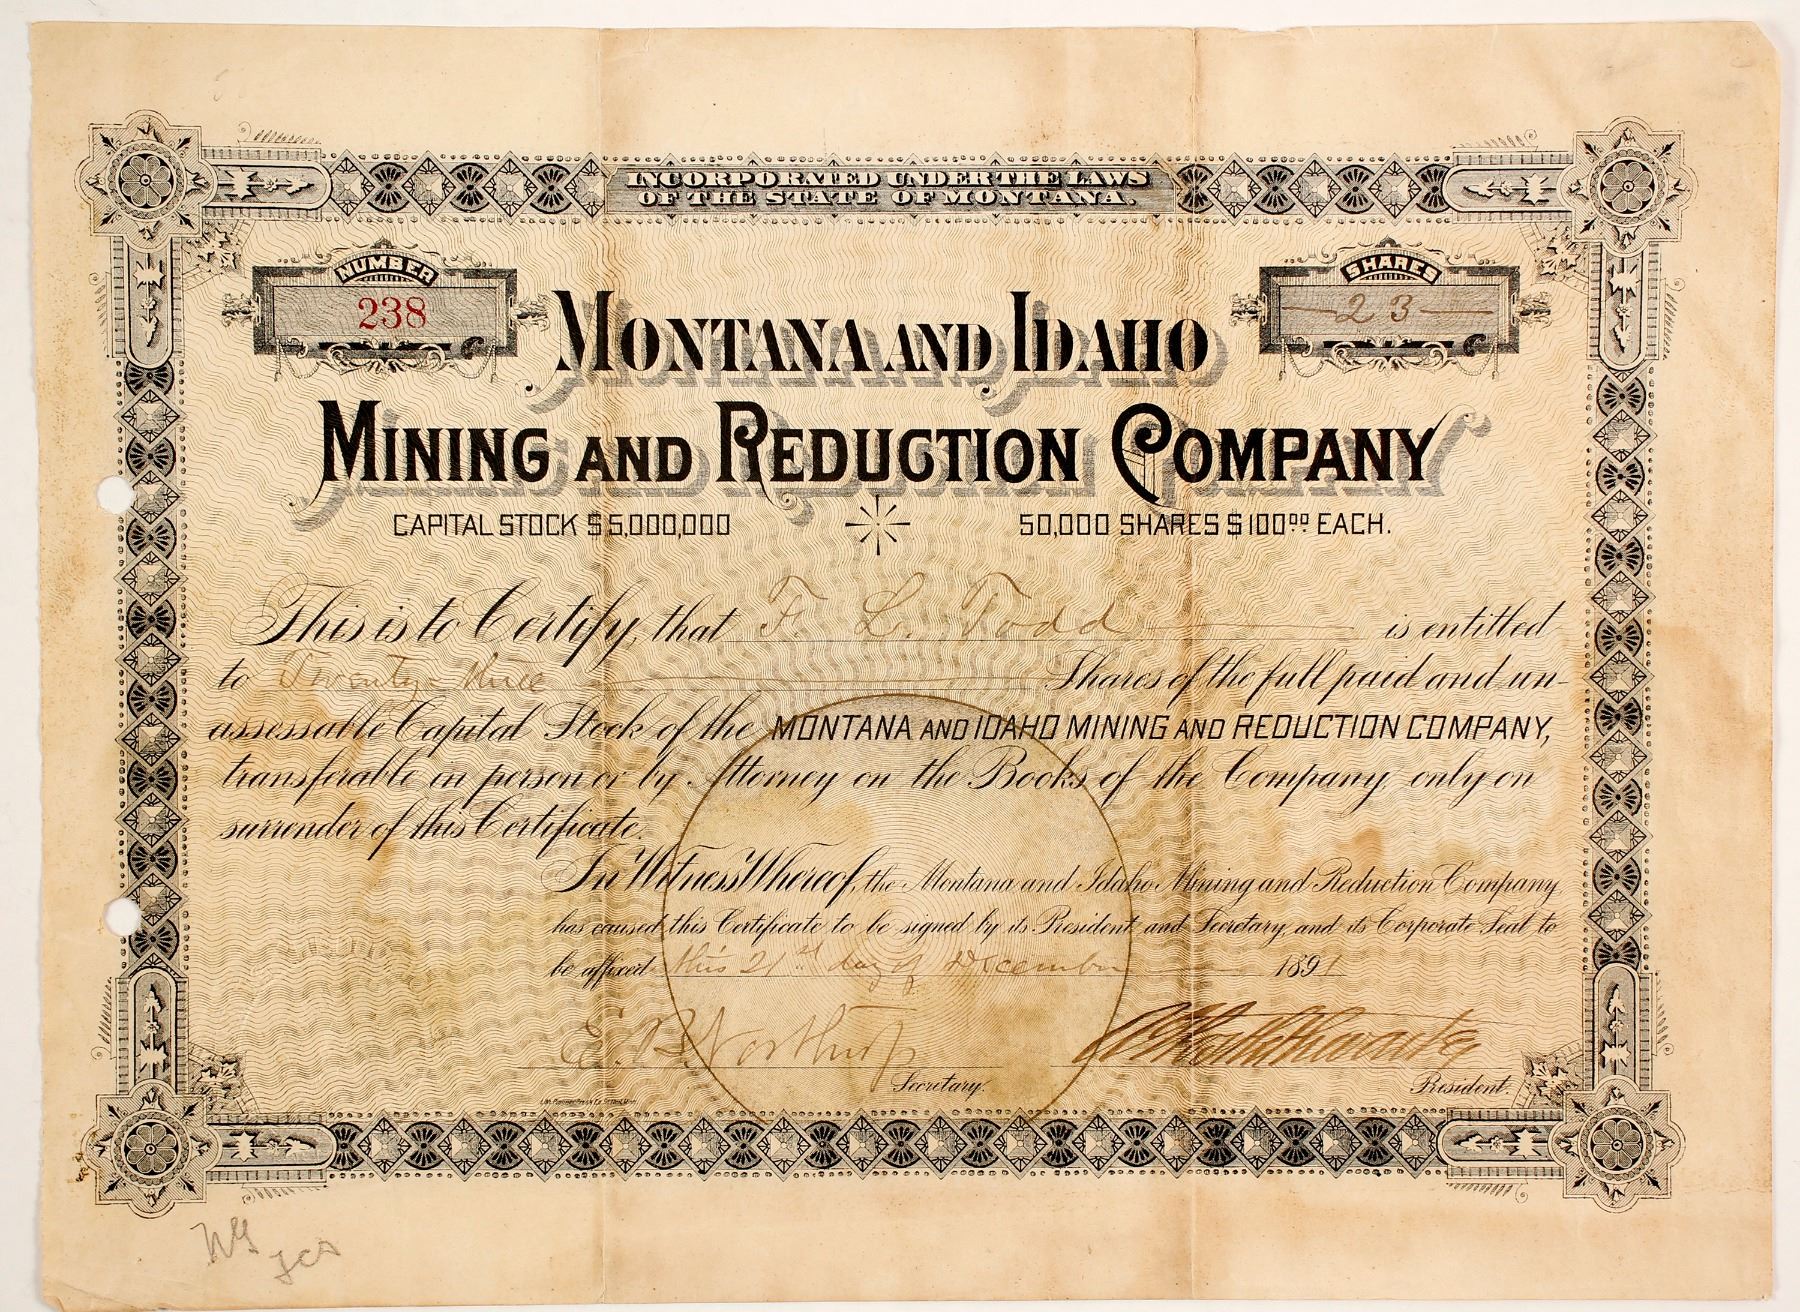 INCORPORATED UNDER THE LAWS
OF THE STATE OF MONTANA.
NUMBER
238
SHARES
23
MONTANA AND IDAHO
MINING AND REDUCTION COMPANY
CAPITAL STOCK $5,000,000
50,000 SHARES $100.00 EACH.
This is to Certify, that F. L. Todd is entitled
to Twenty-three Shares of the full paid and un-
assessable Capital Stock of the MONTANA AND IDAHO MINING AND REDUCTION COMPANY,
transferable in person or by Attorney on the Books of the Company only on
surrender of this Certificate.
In Witness Whereof, the Montana and Idaho Mining and Reduction Company
has caused this Certificate to be signed by its President and Secretary and its Corporate Seal to
be affixed this 21st day of December 1891
Secretary.
President.